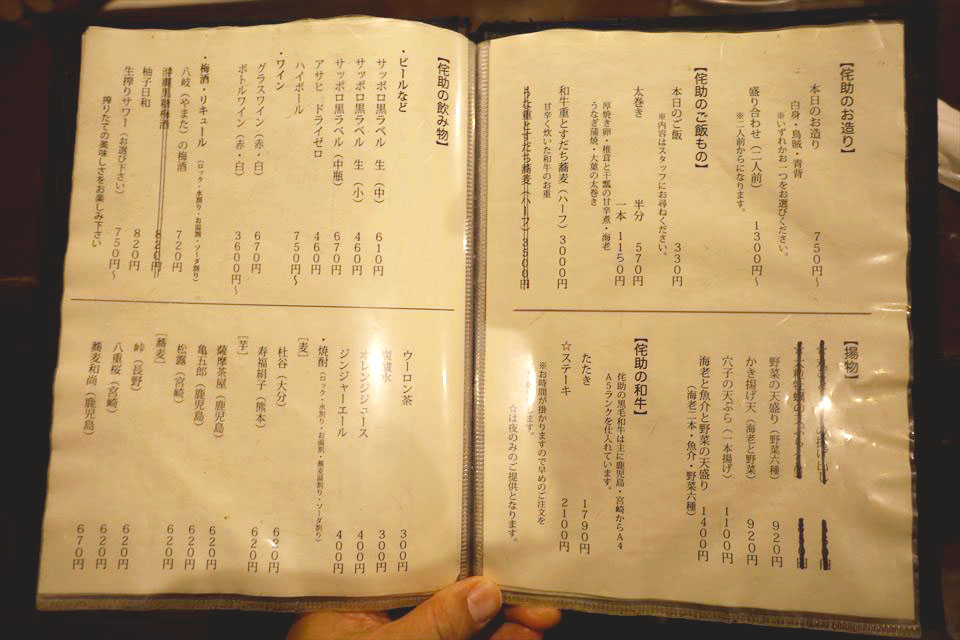 【侘助のお造り】
本日のお造り 750円～
白身・烏賊・青背
※いずれかお一つをお選びください。
盛り合わせ（二人前） 1300円～
※二人前からになります。
【侘助のご飯もの】
本日のご飯 330円
※内容はスタッフにお尋ねください。
太巻き 半分 570円
一本 1150円
厚焼き卵・椎茸と干瓢の甘辛煮・海老
うなぎ蒲焼・大葉の太巻き
和牛重とすだち蕎麦（ハーフ）3000円
甘辛く炊いた和牛のお重
うな重とすだち蕎麦（ハーフ）3500円
【揚物】
野菜の天盛り（野菜六種） 920円
かき揚げ天（海老と野菜） 920円
穴子の天ぷら（一本揚げ） 1100円
海老と魚介と野菜の天盛り 1400円
（海老二本・魚介・野菜六種）
【侘助の和牛】
侘助の黒毛和牛は主に鹿児島・宮崎からA4
A5ランクを仕入れています。
たたき 1790円
☆ステーキ 2100円
※お時間が掛かりますので早めのご注文を
します。
☆は夜のみのご提供となります。
【侘助の飲み物】
・ビールなど
サッポロ黒ラベル 生（中） 610円
サッポロ黒ラベル 生（小） 460円
サッポロ黒ラベル（中瓶） 670円
アサヒ ドライゼロ 460円
ハイボール 750円～
・ワイン
グラスワイン（赤・白） 670円
ボトルワイン（赤・白） 3600円～
・梅酒・リキュール（ロック・水割り・お湯割り・ソーダ割り）
八岐（やまた）の梅酒 720円
沖縄黒糖梅酒 820円
柚子日和 820円
生搾りサワー（お選び下さい） 750円～
搾りたての美味しさをお楽しみ下さい
ウーロン茶 300円
炭酸水 300円
オレンジジュース 400円
ジンジャーエール 400円
・焼酎（ロック・水割り・お湯割・蕎麦湯割り・ソーダ割り）
［麦］
杜谷（大分） 620円
寿福絹子（熊本） 620円
［芋］
薩摩茶屋（鹿児島） 620円
亀五郎（鹿児島） 620円
松露（宮崎） 620円
［蕎麦］
峠（長野） 620円
八重桜（宮崎） 620円
蕎麦和尚（鹿児島） 670円